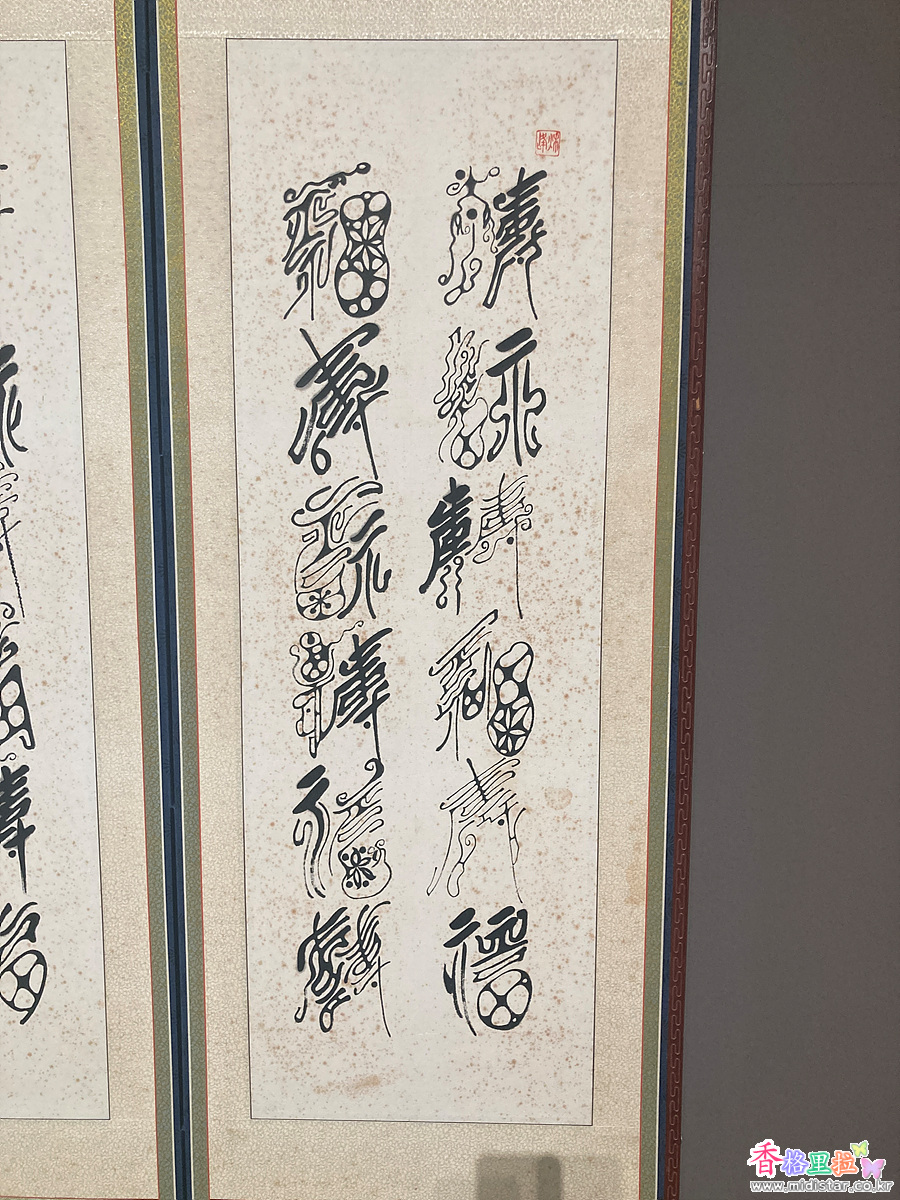 壽福壽福壽福
福壽福壽福壽
香格里拉
www.midistar.co.kr